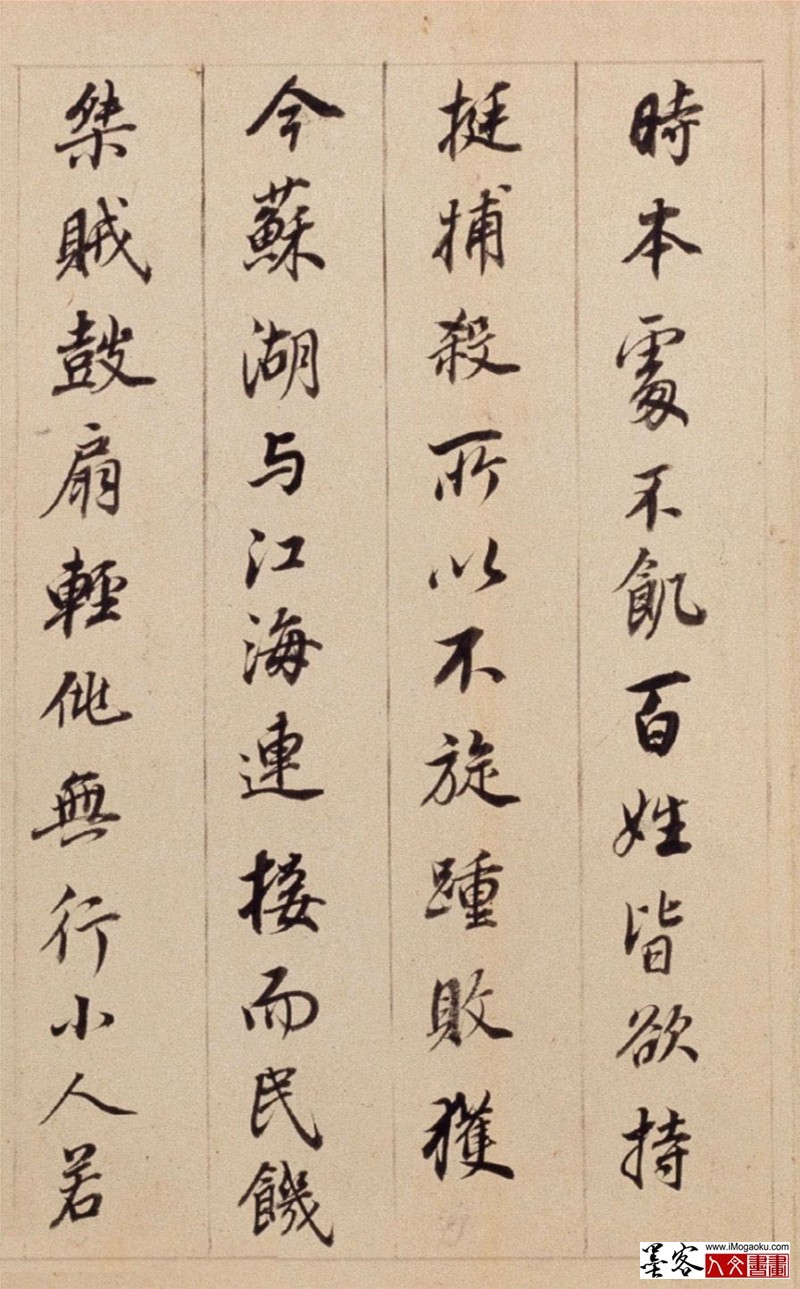 時本處不飢百姓皆欲持
挺捕殺所以不旋踵敗獲
今蘇湖与江海連接而民饑
桀賊鼓扇輕佻無行小人若
墨客 www.iMogaoku.com
人文書畫